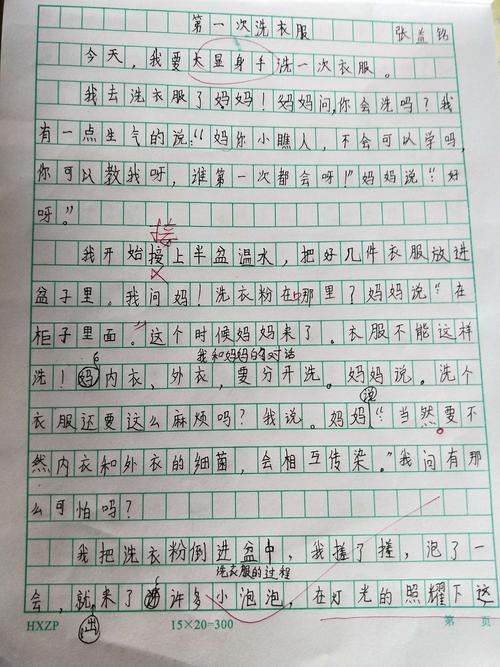 第一次洗衣服 张益铭
今天，我要大显身手洗一次衣服。
我去洗衣服了妈妈！妈妈问，你会洗吗？我
有一点生气的说：“妈你小瞧人，不会可以学吗，
你可以教我呀，谁第一次都会呀！”妈妈说“好
呀。”
接
我开始接上半盆温水，把好几件衣服放进
盆子里。我问妈！洗衣粉在哪里？妈妈说“在
柜子里面。”这个时候妈妈来了。衣服不能这样
我和妈妈的对话
洗！妈内衣、外衣，要分开洗。妈妈说。洗个
说
衣服还要这么麻烦吗？我说。妈妈“当然要不
然内衣和外衣的细菌，会相互传染。”我问有那
么可怕吗？
我把洗衣粉倒进盆中，我搓了搓，泡了一
洗衣服的过程
会，就来了许多小泡泡，在灯光的照耀下这
出
HXZP 15×20=300 第 页